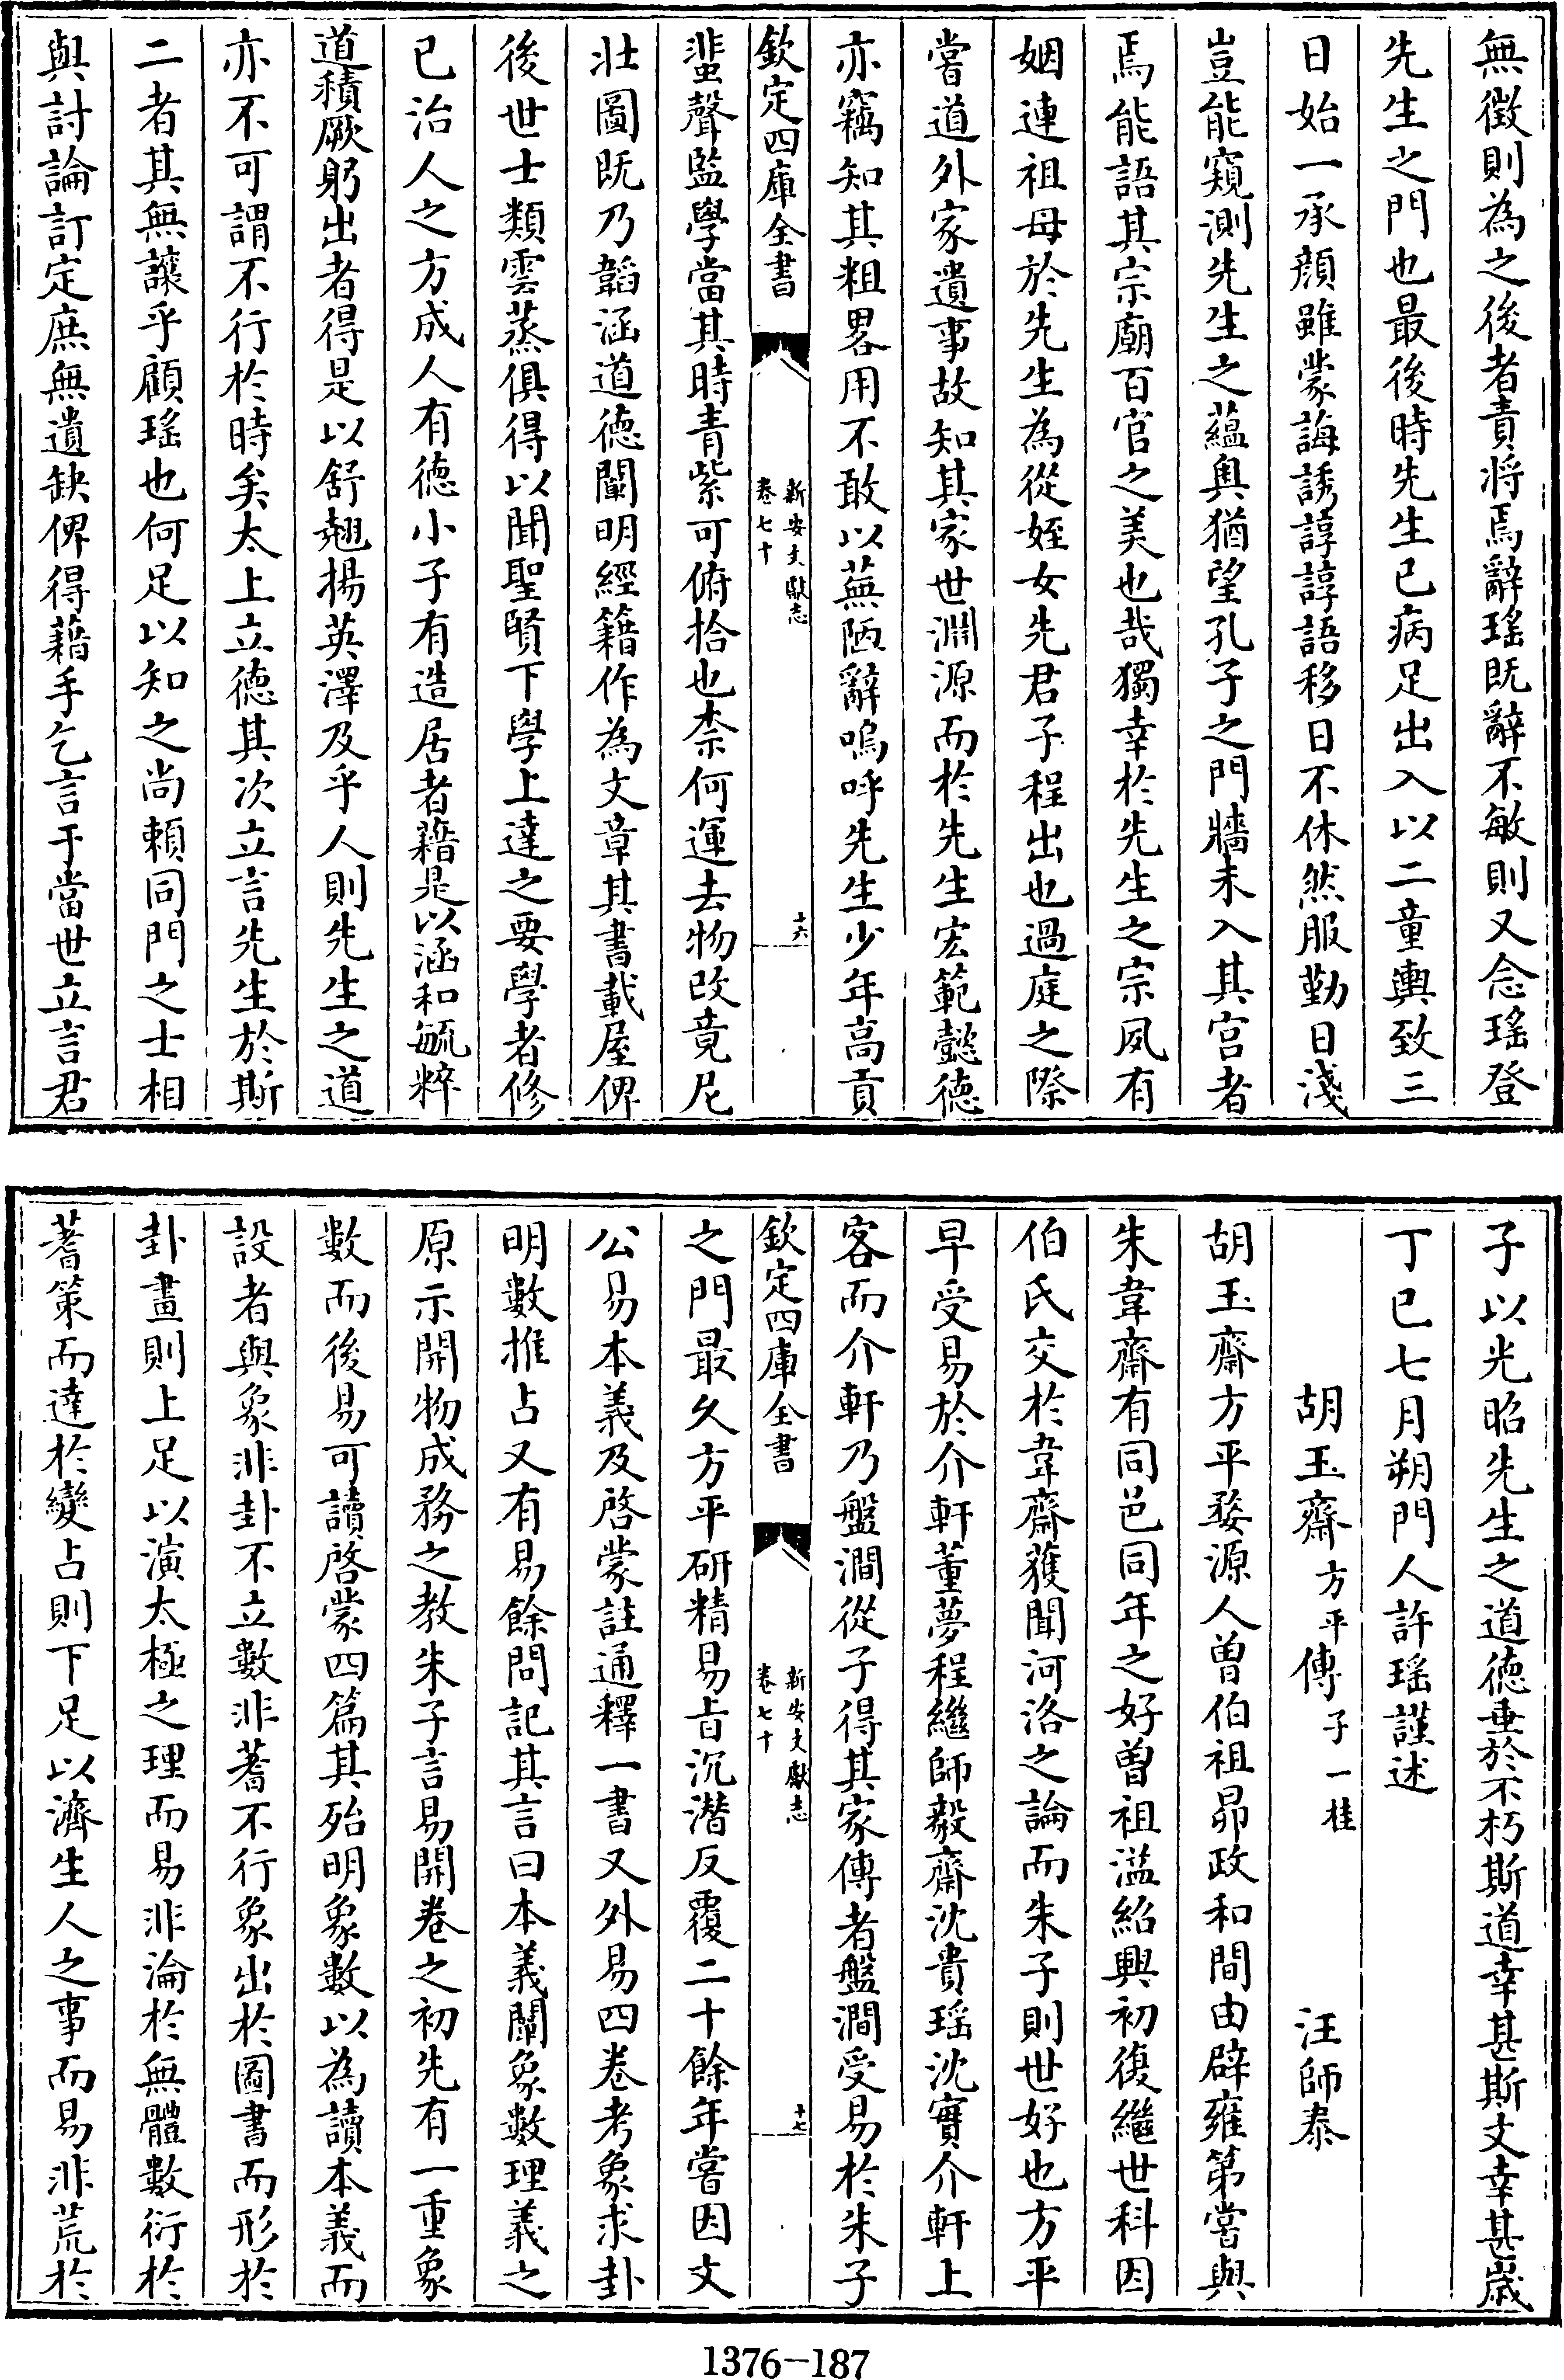 無徴則為之後者責將焉辭瑤既辭不敏則又念瑤登
先生之門也最後時先生已病足出入以二童輿致三
日始一承顔雖蒙誨誘諄諄語移日不休然服勤日淺
豈能窺測先生之蘊奥猶望孔子之門牆未入其宫者
焉能語其宗廟百官之美也哉獨幸於先生之宗夙有
姻連祖母於先生為從姪女先君子程出也過庭之際
嘗道外家遺事故知其家世淵源而於先生宏範懿德
亦竊知其粗畧用不敢以蕪陋辭嗚呼先生少年高貢
欽定四庫全書
新安文獻志
卷七十
十六
蜚聲監學當其時青紫可俯拾也柰何運去物改竟尼
壯圖既乃韜涵道德闡明經籍作為文章其書載屋俾
後世士類雲蒸俱得以聞聖賢下學上達之要學者修
已治人之方成人有德小子有造居者藉是以涵和毓粹
道積厥躬出者得是以舒翹揚英澤及乎人則先生之道
亦不可謂不行於時矣太上立德其次立言先生於斯
二者其無讓乎顧瑤也何足以知之尚頼同門之士相
與討論訂定庶無遺缺俾得藉手乞言于當世立言君
子以光昭先生之道德垂於不朽斯道幸甚斯文幸甚嵗
丁巳七月朔門人許瑤謹述
胡玉齋方平傳子一桂 汪師泰
胡玉齋方平婺源人曽伯祖昴政和間由辟雍第嘗與
朱韋齋有同邑同年之好曽祖溢紹興初復繼世科因
伯氏交於韋齋獲聞河洛之論而朱子則世好也方平
早受易於介軒董夢程繼師毅齋沈貴瑤沈實介軒上
客而介軒乃盤澗從子得其家傳者盤澗受易於朱子
欽定四庫全書
新安文獻志
卷七十
十七
之門最久方平研精易㫖沉潛反覆二十餘年嘗因文
公易本義及啓蒙註通釋一書又外易四卷考象求卦
明數推占又有易餘閒記其言曰本義闡象數理義之
原示開物成務之教朱子言易開卷之初先有一重象
數而後易可讀啓蒙四篇其殆明象數以為讀本義而
設者與象非卦不立數非蓍不行象出於圖書而形於
卦畫則上足以演太極之理而易非淪於無體數衍於
蓍策而達於變占則下足以濟生人之事而易非荒於
1376-187